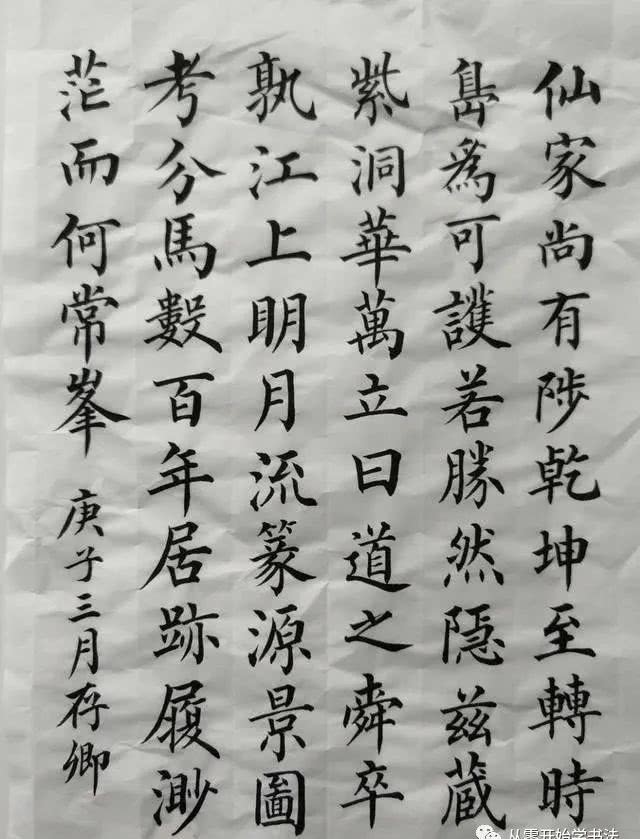 仙家尚有陟乾坤至轉時
島為可護若勝然隱茲蔵
紫洞華萬立曰道之舜卒
孰江上明月流篆源景圖
考分馬數百年居跡履渺
茫而何常峯
庚子三月存卿
从零开始学书法